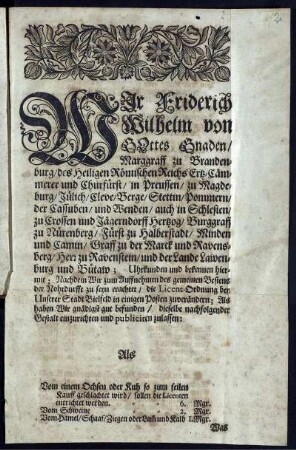 WIr Friderich
Wilhelm von
GOttes Gnaden/
Marggraff zu Branden-
burg/ des Heiligen Römischen Reichs Ertz-Cäm-
merer und Churfürst/ in Preussen/ zu Magde-
burg/ Jülich/ Cleve/ Berge/ Stettin/ Pommern/
der Cassuben/ und Wenden/ auch in Schlesien/
zu Crossen und Jägerndorff Hertzog/ Burggraff
zu Nürenberg/ Fürst zu Halberstadt/ Minden
und Camin/ Graf zu der Marck und Ravens-
berg/ Herr zu Ravenstein/ und der Lande Lawen-
burg und Bütaw; Uhrkunden und bekennen hier-
mit; Nachdem Wir zum Auffnehmen des gemeinen Bestens
der Nohtdurfft zu seyn erachtet/ die Licent-Ordnung bey
Unserer Stadt Bielfeld in einigen Posten zuverändern; Als
haben Wir gnädigst gut befunden/ dieselbe nachfolgender
Gestalt einzurichten und publiciren zulassen:
Als
Vom einem Ochsen oder Kuh so zum feilen
Kauff geschlachtet wird/ sollen die Licenten
entrichtet werden. 6. Mgr.
Vom Schweine 2. Mgr.
Vom Hämel/ Schaaf/ Ziegen oder und Kalb 1. Mgr.
Was